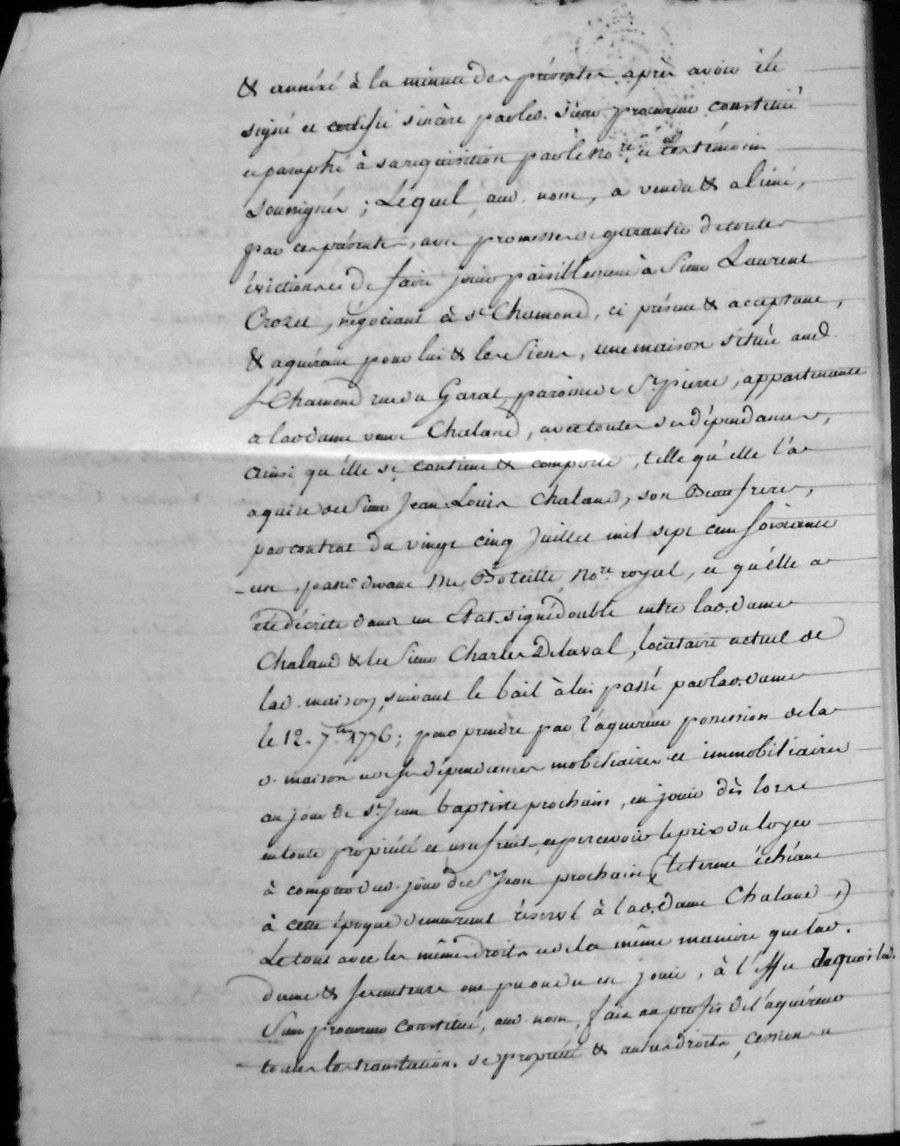 & annéxé à la minute des présentes après avoir été
signé et certifié sincère par led. sieur procureur constitué
et paraphé à sa requisition par le Nore. et les témoins
soussignés ; Lequel, aud. nom, a vendu & aliéné,
par ces présentes, avec promesse de garantie de toutes
évictions et de faire jouir paisiblement à sieur Laurent
Crozet, négociant à St Chamond, ci présent & acceptant,
& aquérant pour lui & les siens, une maison située aud
St Chamond rue du Garat, paroisse de St pierre, appartenante
a lad. dame veuve Chaland, avec toutes ses dépendances,
ainsi qu'elle se contient & comporte, telle qu'elle l'a
aquise de sieur Jean Louis Chaland, son Beaufrere,
par contrat du vingt cinq Juillet mil sept cent soixante
un, passé devant Me Boteille, Nore. royal, et qu'elle a
été décrite dans un Etat signé double entre lad. dame
Chaland & le sieur Charles Delaval, locataire actuel de
lad. maison, suivant le bail à lui passé par lad. dame
le 12. 7bre 1776 ; pour prendre par l'aquéreur possession de la
d. maison et de ses dépendances mobiliaires et immobiliaires
au jour de St Jean baptiste prochain, en jouir dès lors
en toute propriété et usufruit, et percevoir le prix du loyer
à compter dud. jour de St Jean prochain, (le terme échéant
à cette époque demeurant réservé à lad. dame Chaland,)
Le tout avec les mêmes droits et de la même maniere que lad.
dame & ses auteurs ont pu ou du en jouir, à l'effet de quoi led.
sieur procureur constitué, aud. nom, fait au profit de l'aquéreur
toutes les translations de propriété & autres droits, cessions